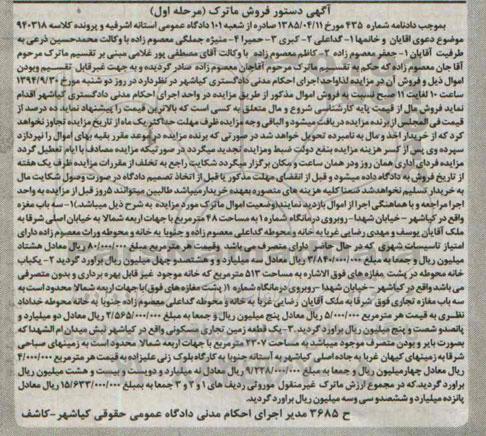 آگهی دستور فروش ماترک (مرحله اول)
بموجب دادنامه شماره ۴۳۵ مورخ ۱۳۸۵/۰۴/۱۱ صادره از شعبه ۱۰۱ دادگاه عمومی آستانه اشرفیه و پرونده کلاسه ۹۴۰۳۱۸
موضوع دعوی آقایان و خانمها ۱- گداعلی ۲- کبری ۳- حمیرا ۴- منیژه جملگی معصوم زاده با وکالت محمدحسین ذرعی به
طرفیت آقایان ۱- جعفر معصوم زاده ۲- کاظم معصوم زاده با وکالت آقای مصطفی پور غلامی مبنی بر تقسیم ماترک مرحوم
آقا جان معصوم زاده که حکم به تقسیم ماترک مرحوم آقاجان معصوم زاده صادر گردیده و به جهت غیرقابل تقسیم بودن
اموال ذیل و فروش آن در مزایده لذا واحد اجرای احکام مدنی دادگستری کیاشهر در نظر دارد در روز دو شنبه مورخ ۱۳۹۴/۹/۳۰
ساعت ۱۰ لغایت ۱۱ صبح نسبت به فروش اموال مذکور از طریق مزایده در واحد اجرای احکام مدنی دادگستری کیاشهر اقدام
نماید فروش مال از قیمت پایه کارشناسی شروع و مال متعلق به کسی است که بالاترین قیمت را پیشنهاد نماید ده درصد از
قیمت فی المجلس از برنده مزایده دریافت میشود و الباقی وجه مزایده ظرف مهلت حداکثر یک ماه از تاریخ مزایده تجاوز نخواهد
کرد که از خریدار اخذ و مال به نامبرده تحویل خواهد شد در صورتی که برنده مزایده در موعد مقرر بقیه بهای اموال را نپردازد
سپرده وی پس از کسر هزینه مزایده بنفع دولت ضبط و مزایده تجدید میگردد در صورتیکه مزایده مصادف با ایام تعطیل گردد
مزایده فردای اداری همان روز و در همان ساعت و مکان برگزار میگردد شکایت راجع به تخلف از مقررات مزایده ظرف یک هفته
از تاریخ فروش به دادگاه داده میشود و قبل از انقضای مهلت مذکور یا قبل از اتخاذ تصمیم دادگاه در صورت وصول شکایت مال
به خریدار تسلیم نخواهد شد ضمنا کلیه هزینه های متصوره بعهده خریدار میباشد طالبین میتوانند ۵روز قبل از مزایده به واحد
اجرا مراجعه و با هماهنگی اجرا از اموال بازدید نمایند(وضعیت اموال ماترک مورد مزایده به شرح ذیل میباشد.)۱- سه باب مغازه
واقع در کیاشهر – خیابان شهدا- روبروی درمانگاه شماره ۱ به مساحت ۴۸ مترمربع با جهات اربعه شمالا به خیابان اصلی شرقا به
ملک آقایان یوسف و مهدی رضایی غربا به خانه و محوطه گداعلی معصوم زاده و جنوبا به خانه و محوطه وراث معصوم زاده دارای
امتیاز تاسیسات شهری که در حال حاضر دارای متصرف می باشد وقیمت هر مترمربع مبلغ ۸۰/۰۰۰/۰۰۰ ریال معادل هشتاد
میلیون ریال و جمعا به مبلغ ۳/۸۴۰/۰۰۰/۰۰۰ ریال معادل سه میلیارد و هشتصد و چهل میلیون ریال برآورد گردید ۲- یکباب
خانه محوطه در پشت مغازه های فوق الاشاره به مساحت ۵۱۳ مترمربع که خانه موجود غیر قابل بهره برداری و بدون متصرفی
می باشد واقع در کیاشهر –خیابان شهدا –روبروی درمانگاه شماره ۱ پشت مغازه های فوق باجهات اربعه شمالا محدود است به
سه باب مغازه تجاری فوق شرقا به ملک آقایان رضایی غربا به خانه و محوطه گداعلی معصوم زاده جنوبا به خانه محوطه خداداد
نظری به قیمت هر مترمربع ۵/۰۰۰/۰۰۰ ریال معادل پنج میلیون ریال و جمعا به مبلغ ۲/۵۶۵/۰۰۰/۰۰۰ ریال معادل دو میلیارد و
پانصدو شصت و پنج میلیون ریال برآورد گردید. ۳- یک قطعه زمین تجاری مسکونی واقع در کیاشهر نبش میدان ام الشهدا که
بصورت بایر و بودن متصرف موجود میباشد، به مساحت ۲۳۰۷ مترمربع با جهات اربعه شمالا محدود است به زمینهای سیاحی
شرقا به زمینهای کیهان غربا به جاده اصلی کیاشهر به آستانه جنوبا به کارگاه بلوک زنی علیزاده به قیمت هر مترمربع ۴/۰۰۰/۰۰۰
ریال معادل چهارمیلیون ریال و جمعا به مبلغ ۹/۲۲۸/۰۰۰/۰۰۰ ریال معادل نه میلیارد و دویست و بیست و هشت میلیون ریال
برآورد گردید.که در مجموع ارزش ماترک غیرمنقول موروثی ردیف های ۱ و ۲ و ۳ جمعا به مبلغ ۱۵/۶۳۳/۰۰۰/۰۰۰ ریال معادل
پانزده میلیارد و ششصدو سی وسه میلیون ریال برآورد گردید.
ح ۳۶۸۵ مدیر اجرای احکام مدنی دادگاه عمومی حقوقی کیاشهر-کاشف